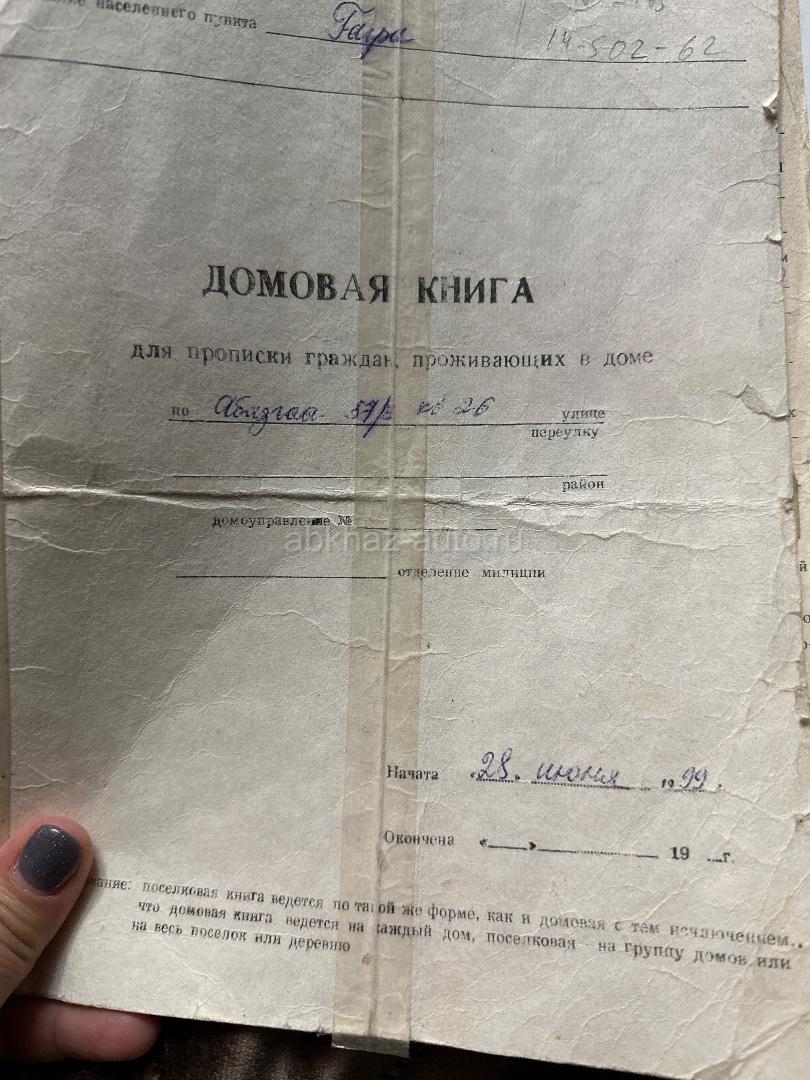 населенного пункта Гагра
14-502-62
ДОМОВАЯ КНИГА
для прописки граждан, проживающих в доме
по Абазгаа 57/2 кв 26 улице
переулку
район
домоуправление №
abkhaz-auto.ru
отделение милиции
Начата «28» июня 1999.
Окончена «___»___ 19 __г.
поселковая книга ведется по такой же форме, как и домовая с тем исключением..
что домовая книга ведется на каждый дом, поселковая на группу домов или
на весь поселок или деревню